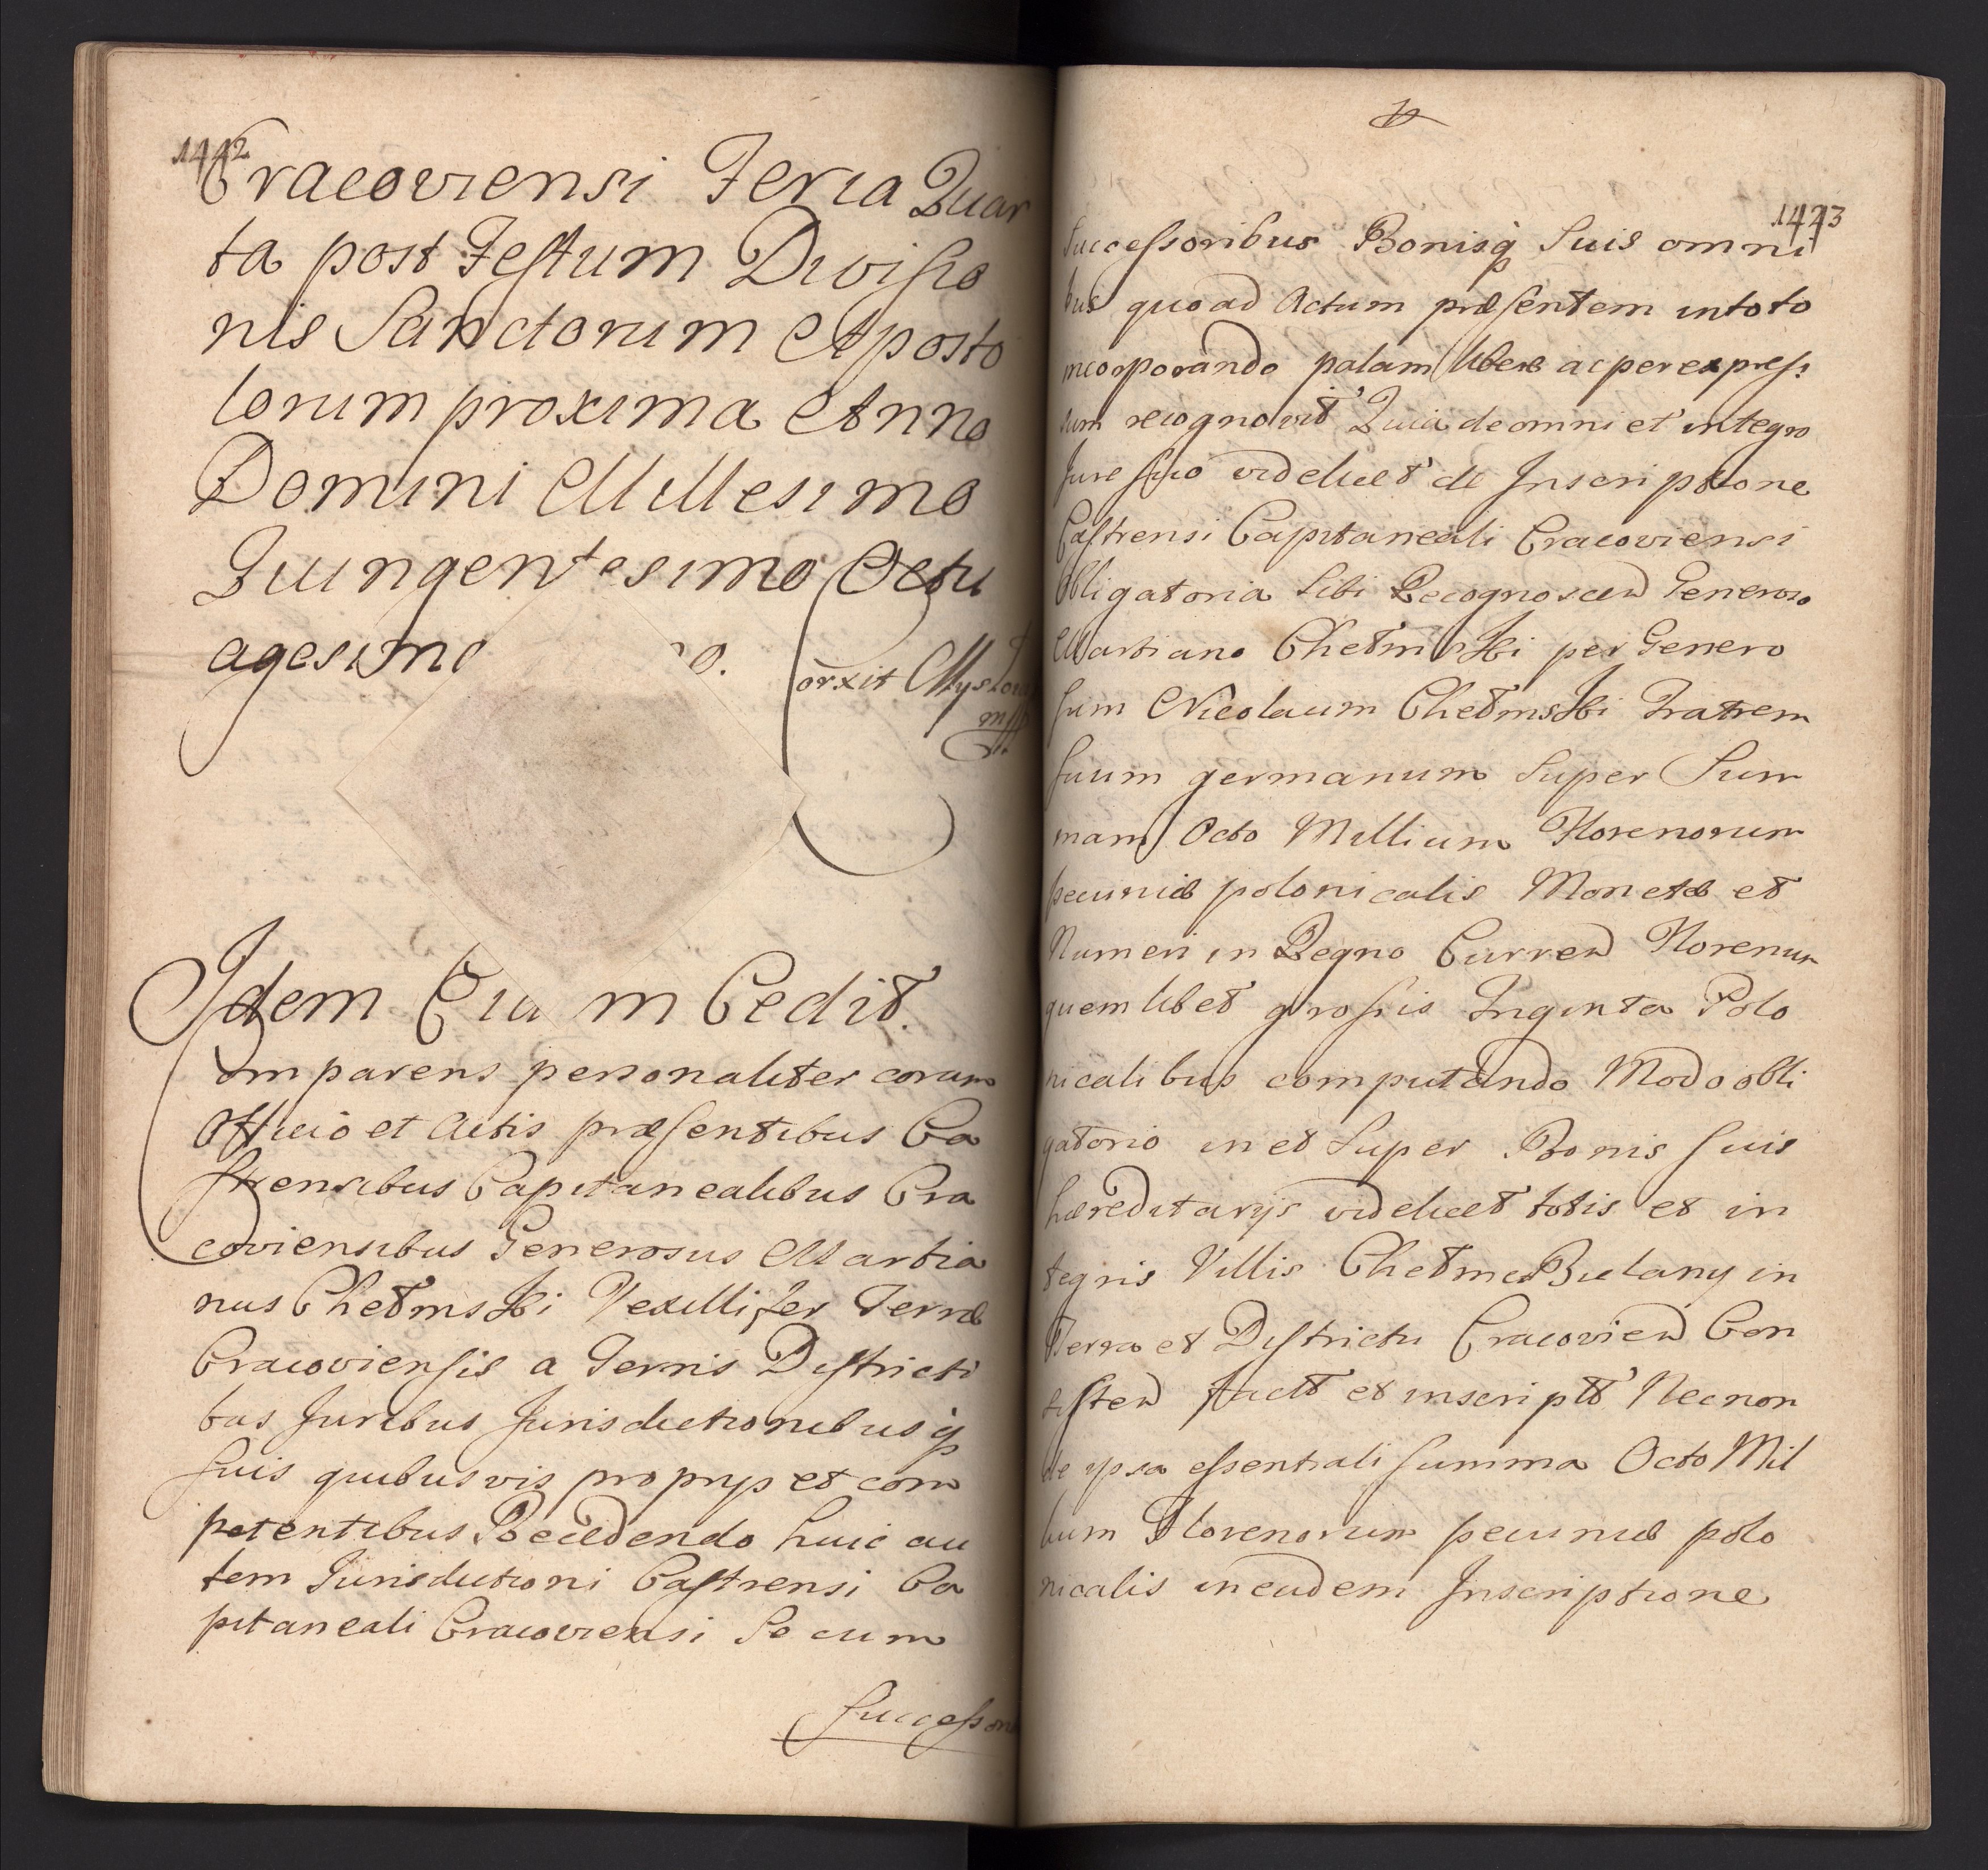 1442
Cracoviensi Feria Quar
ta post Festum Divisio
nis Sanctorum Aposto
lorum proxima Anno
Domini Millesimo
Quingentesimo Octu
agesimo
orxit
mpp
Idem Cedit.
Comparens personaliter coram
Officio et Actis præsentibus Ca
strensibus Capitanealibus Cra
coviensibus Generosus Martia
nus Chełmski Vexillifer Terræ
Cracoviensis a Terris Districti
bus Juribus Jurisdictionibusq;
suis quibusvis proprijs et com
petentibus Recedendo huic au
tem Jurisdictioni Castrensi Ca
pitaneali Cracoviensi Se cum
Successori
1443
Successoribus Bonisq; Suis omni
bus quoad Actum præsentem in toto
incorporando palam libere ac per expres
sum recognovit Quia de omni et integro
Jure suo videlicet de Inscriptione
Castrensi Capitaneali Cracoviensi
Obligatoria Sibi Recognoscen Generoso
Martiano Chełmski per Genero
sum Nicolaum Chełmski Fratrem
suum germanum Super Sum
mam Octo Millium Florenorum
pecuniæ polonicalis Monetæ et
Numeri in Regno Curren Florenum
quemlibet grossis Triginta Polo
nicalibus computando Modo obli
gatorio in et Super Bonis suis
hæreditarijs videlicet totis et in
tegris Villis Chełm et Bielany in
Terra et Districtu Cracovien Con
sisten fact et inscript Necnon
de ipsa essentiali summa Octo Mil
lium Florenorum pecuniæ polo
nicalis in eadem Inscriptione